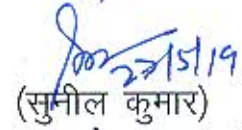 22/5/19
(सुनील कुमार)